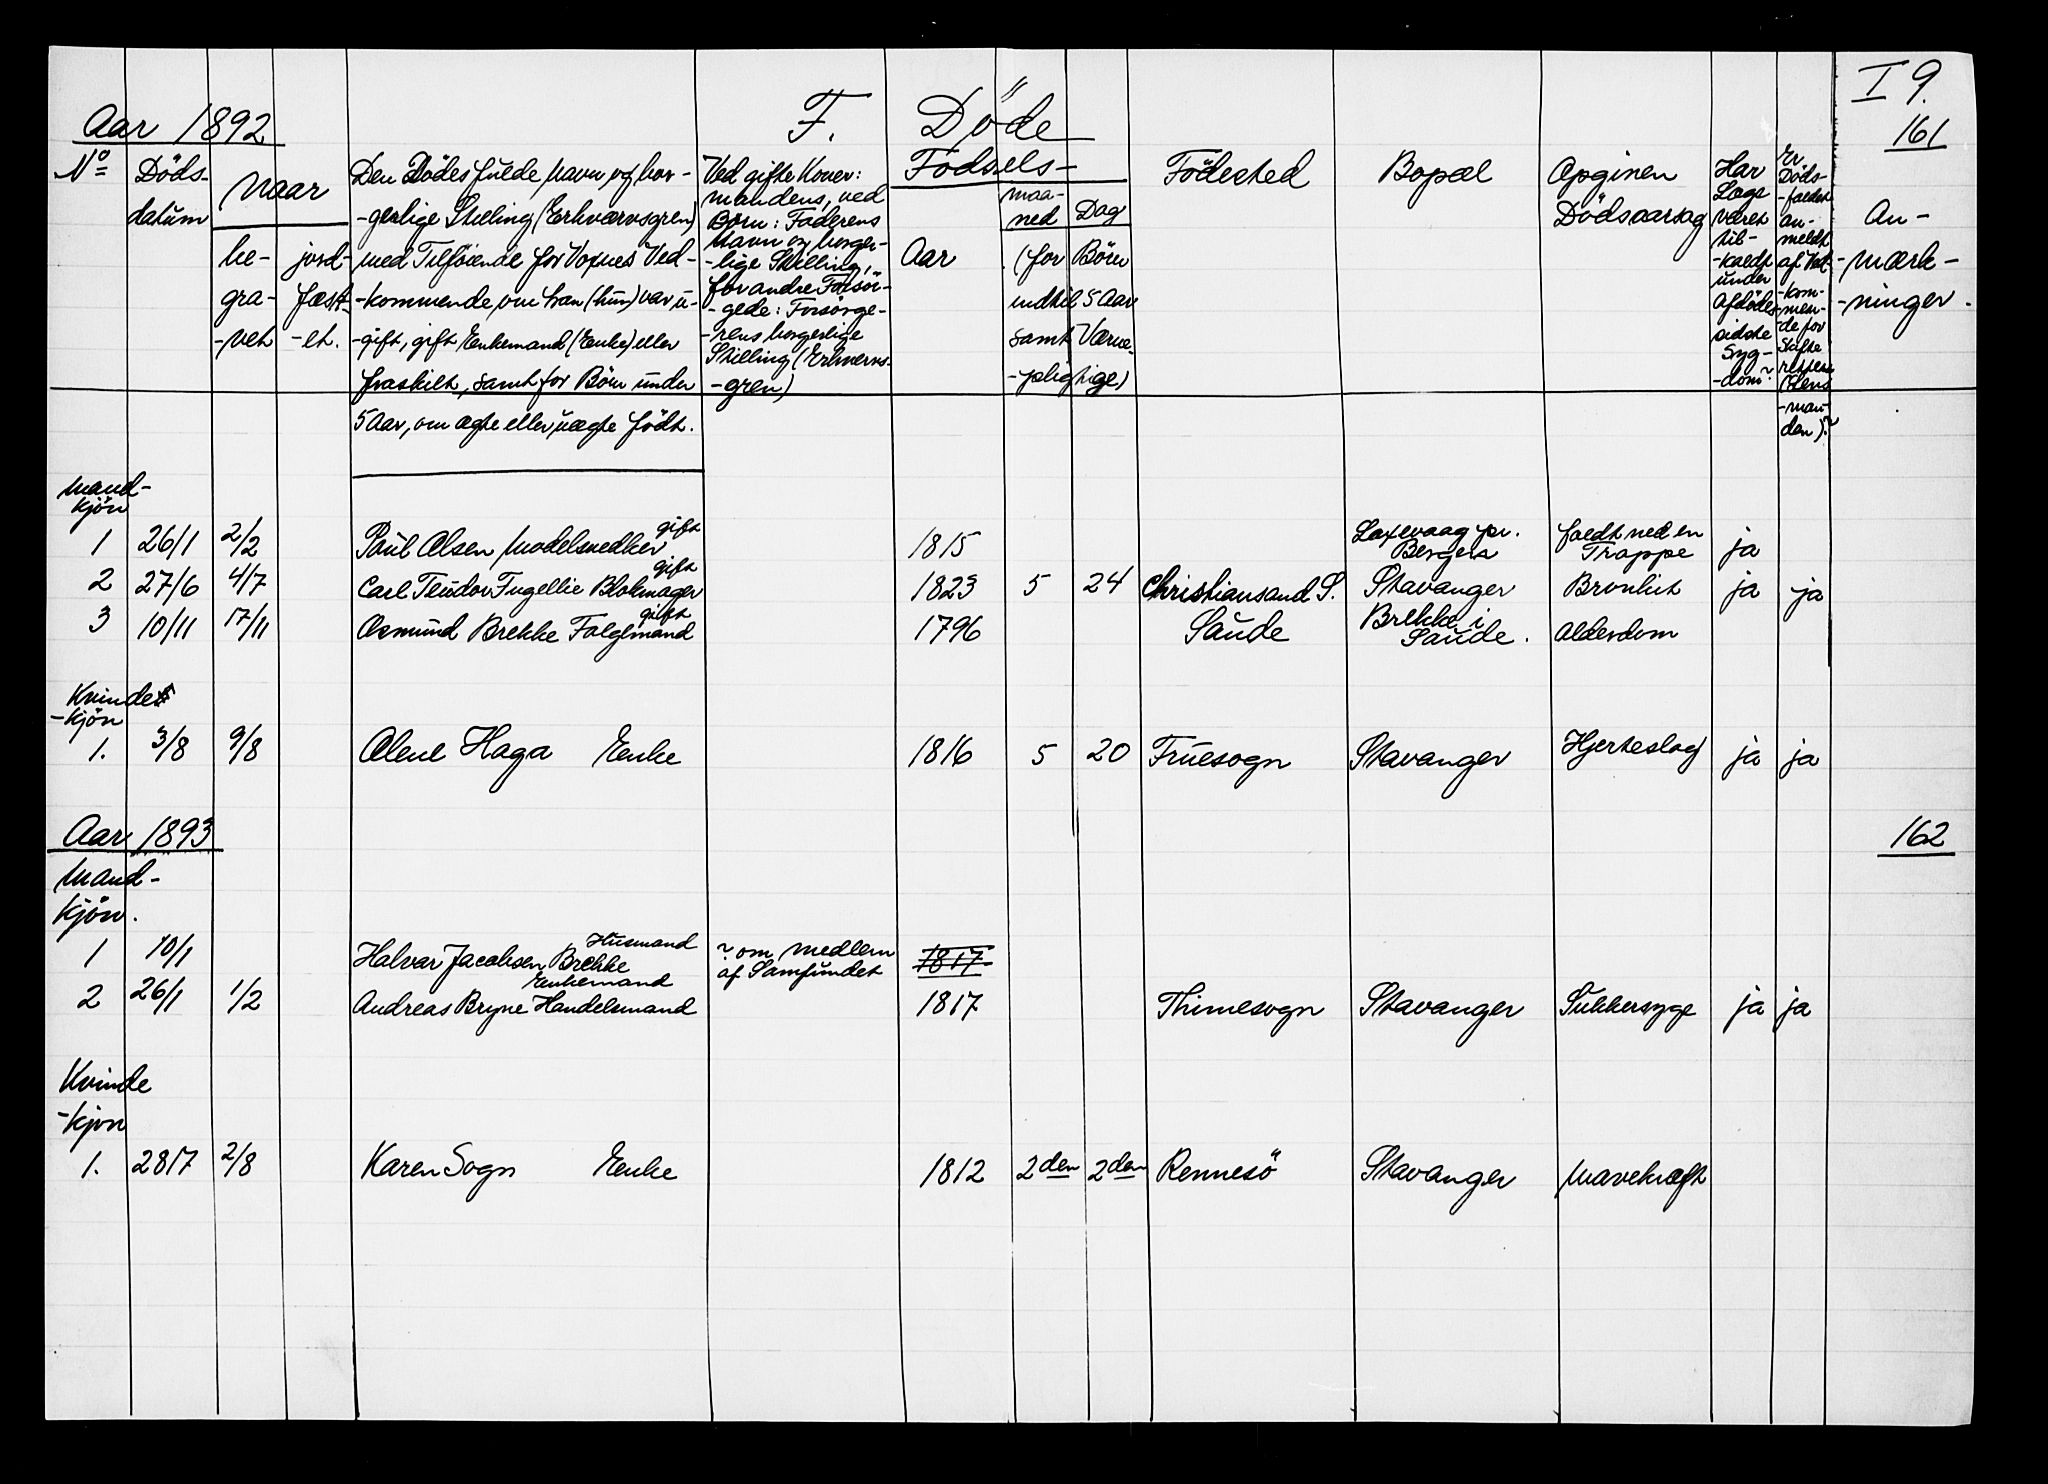 I 9.
Aar 1892 F. Döde 161
No Döds-datum Naar be-gra-vet jord-fæst-et. Den Dödes fulde Navn og bor-gerlige Stilling (Erhvervsgren) med Tilföiende for Voxnes Ved-kommende, om han (hun) var u-gift, gift, Enkemand (Enke) eller fraskilt, samt for Börn under 5 Aar, om ægte eller uægte födt. Ved gifte Koner: mandens, ved Börn: Faderens Navn og borger-lige Stilling, for andre Forsör-gede: Forsörge-rens borgerlige Stilling (Erhvervs-gren) Födsels- Aar maa-ned Dag (for Börn indtil 5 Aar samt Værne-pligtige) Födested Bopæl Opgiven Dödsaarsag Har Læge været til-kaldt under Afdödes sidste Syg-dom? Er Döds-faldet an-meldt af Ved-kom-men-de for Skifte retten (Lens-man-den)? An-mærk-ninger.
Mand-
kjön
1 26/1 2/2 Paul Olsen Modelsnedker gift 1815 Laxevaag pr. Bergen faldt ned en Trappe ja
2 27/6 4/7 Carl Teodor Fugellie Blokmager gift 1823 5 24 Christiansand S. Stavanger Bronkit ja ja
3 10/11 17/11 Osmund Brekke Folgemand gift 1796 Saude Brekke i Saude. Alderdom
Kvinde
-kjön
1. 3/8 9/8 Olene Haga Enke 1816 5 20 Fruesogn Stavanger Hjerteslag ja ja
Aar 1893 162
Mand-
kjön.
1 10/1 Halvar Jacobsen Brekke Husmand ? om medlem af Samfundet 1817
2 26/1 1/2 Andreas Bryne Handelsmand Enkemand 1817 Thimesogn Stavanger Sukkersyge ja ja
Kvinde
-kjön
1. 28/7 2/8 Karen Sogn Enke 1812 2den 2den Rennesö Stavanger Mavekræft